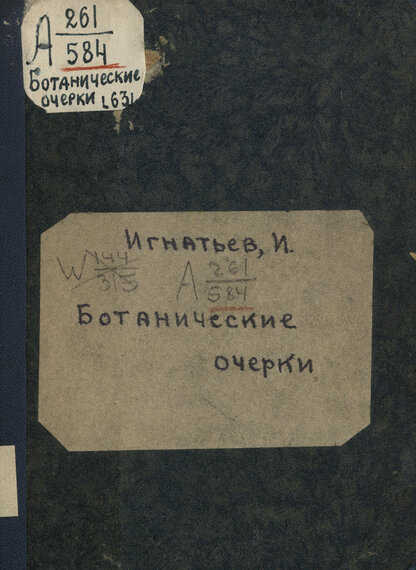 261
А 584
Ботанические
очерки [63]
Игнатьев, И.
W 144 А 261
315 584
Ботанические
очерки